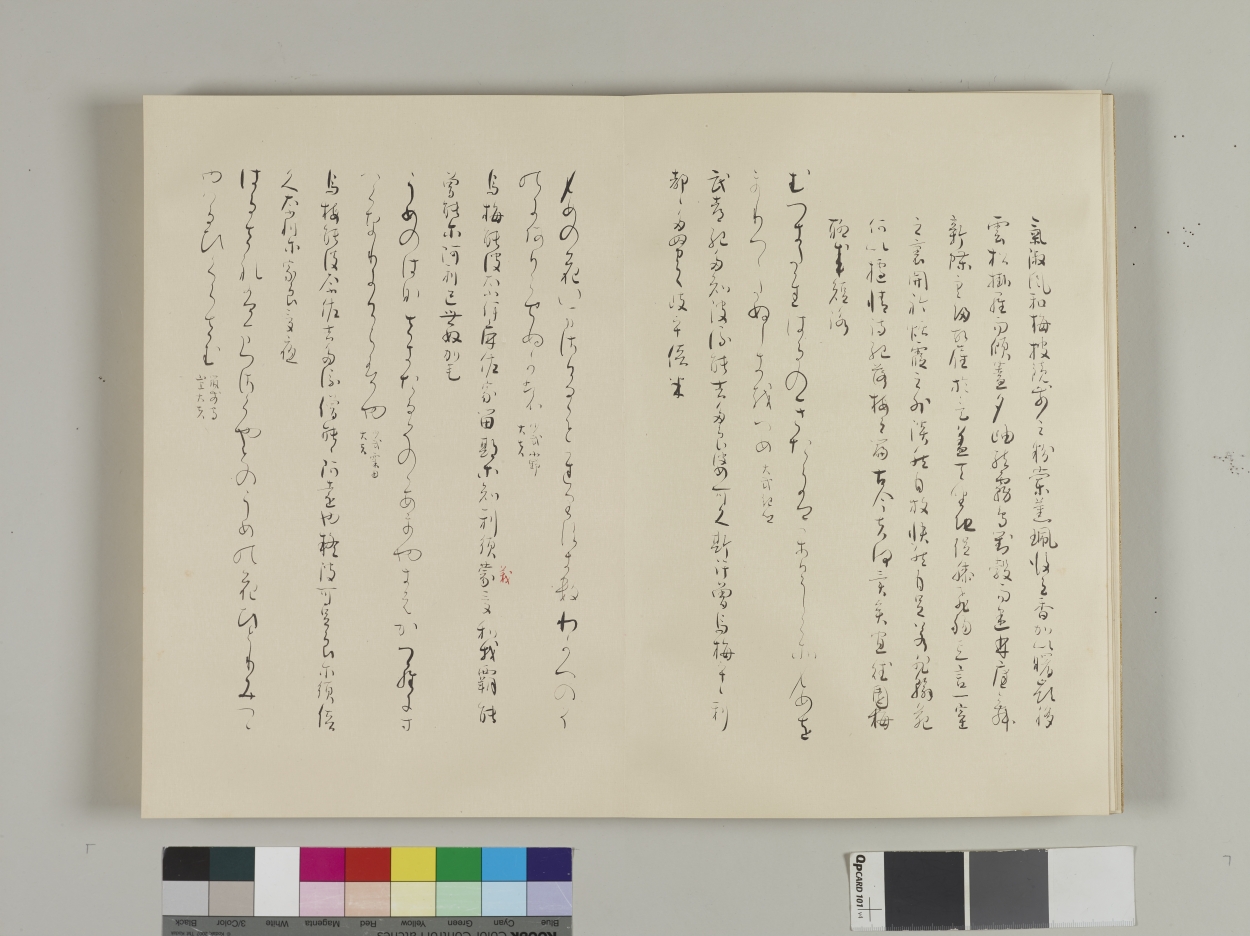 氣淑風和梅披鏡前之粉蘭薫珮後之香加以曙嶺移
雲松掛羅而傾蓋夕岫結霧鳥對縠而迷林庭舞
新蝶空歸故雁於是蓋天坐地促膝飛觴忘言一室
之裏開衿煙霞之外淡然自放快然自足若非翰苑
何以攄情詩紀落梅之篇古今夫何異矣宜賦園梅
聊成短詠
むつきたちはるのきたらはかくしこそむめを
をりつゝたぬしきをへめ 大貳紀卿
武都紀多知波流能吉多良婆可久斯許曽烏梅乎々利
都々多努之岐乎倍米
むめの花いまさけることちりすきす わかへのそ
のにありこせぬかも 少貳小野大夫
烏梅能波奈伊麻佐家留期等知利須蒙受和我覇能
義
曽能尓阿利己世奴加毛
うめのはなさきたるそのゝあをやきはかつらにす
へくなりにけらすや 少貳粟田大夫
烏梅能波奈佐吉多流僧能々阿遠也疑波可豆良尓須倍
久奈利尓家良受夜
はるされはまつさくやとのうめの花ひとりみつゝ
やはるひくらさむ 筑前守山大夫
KODAK Color Control Patches
Blue
Cyan
Green
Yellow
Red
Magenta
White
3/Color
Black
QPCARD 101